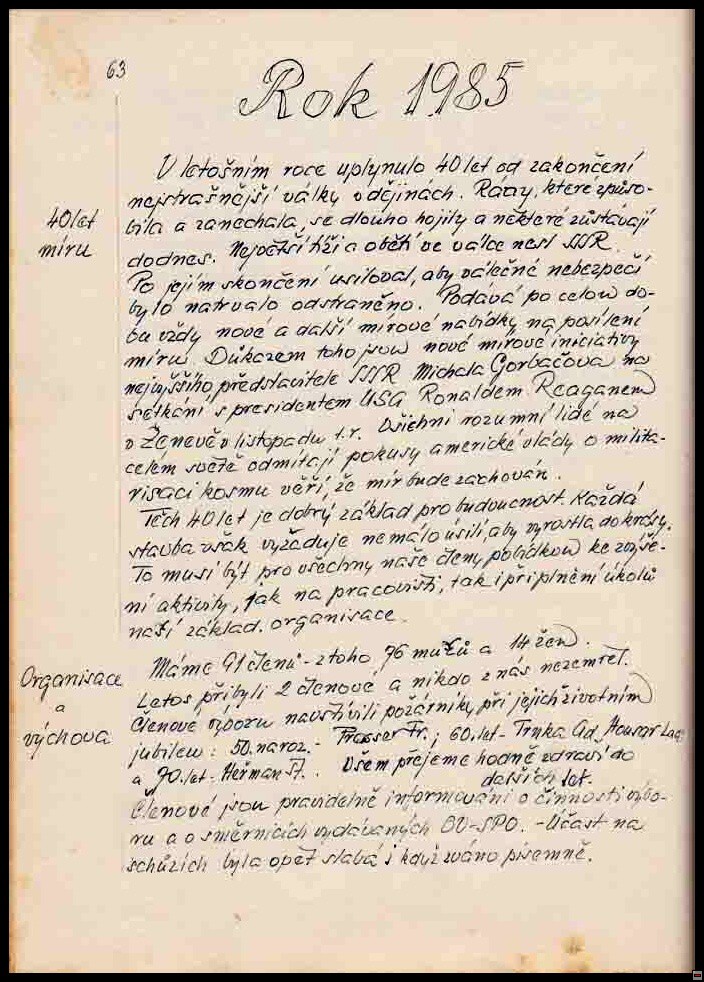 63
Rok 1985
V letošním roce uplynulo 40 let od zakončení
40 let
míru
nejstrašnější války v dějinách. Rány, které způso-
bila a zanechala, se dlouho hojily a některé zůstávají
dodnes. Největší tíži a oběti ve válce nesl SSSR.
Po jejím skončení usiloval, aby válečné nebezpečí
bylo natrvalo odstraněno. Podává po celou do-
bu vždy nové a další mírové nabídky na posílení
míru. Důkazem toho jsou nové mírové iniciativy
nejvyššího představitele SSSR Michala Gorbačova na
setkání s presidentem USA Ronaldem Reaganem
v Ženevě v listopadu t.r. Všichni rozumní lidé na
celem světě odmítají pokusy americké vlády o milita-
risaci kosmu věří, že mír bude zachován.
Těch 40 let je dobrý základ pro budoucnost. Každá
stavba však vyžaduje nemálo úsilí, aby vyrostla do krásy.
To musí být pro všechny naše členy pobídkou ke zvýše-
ní aktivity, jak na pracovišti, tak i při plnění úkolů
naší základ. organisace.
Organisace
a
výchova
Máme 91 členů - z toho 76 mužů a 14 žen.
Letos přibyli 2 členové a nikdo z nás nezemřel.
Členové výboru navštívili požárníky při jejich životním
jubileu: 50. naroz. - Prosser Fr.; 60. let - Trnka Ad, Housar Lad
a 70. let - Heřman St. Všem přejeme hodně zdraví do
dalších let.
Členové jsou pravidelně informováni o činnosti výbo-
ru a o směrnicích vydávaných OV-SPO. - Účast na
schůzích byla opět slabá i když zváno písemně.